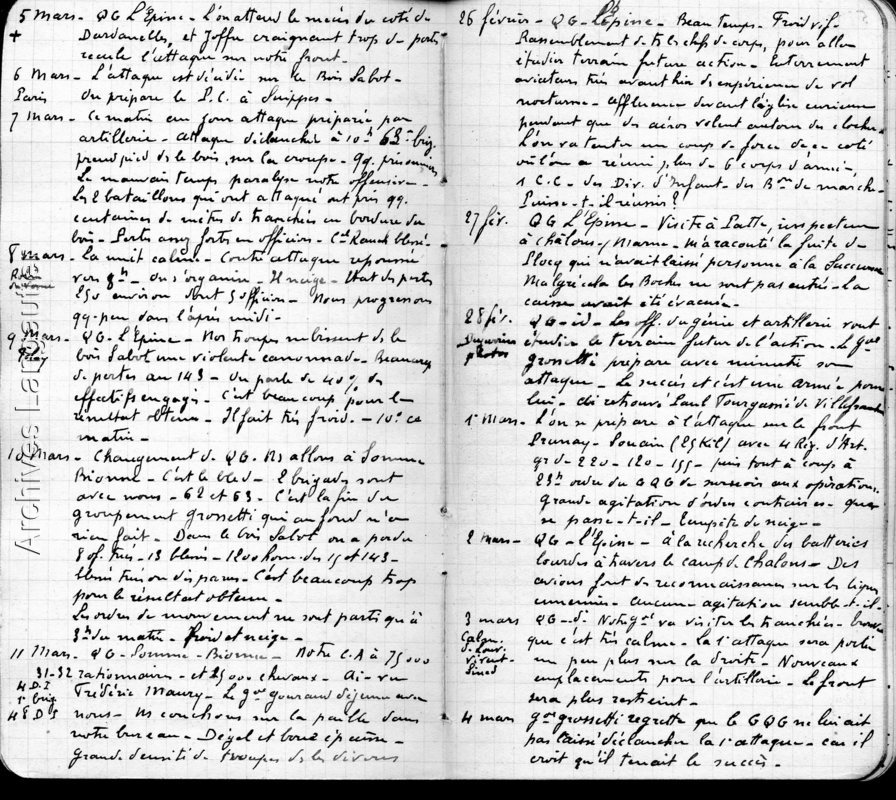 5 Mars - QG L'Epine - L'on attend le succès du coté de
+ Dardanelles, et Joffre craignant trop de pertes
recule l'attaque sur notre front.
6 Mars - L'attaque est décidée sur le Bois Sabot -
Paris On prépare le P.C. à Suippes -
7 Mars - Ce matin au jour attaque préparée par
artillerie - attaque déclanchée à 10h 63e brig.
prend pied ds le bois, sur la croupe - qq. prisonniers
Le mauvais temps paralyse notre offensive -
Les 2 bataillons qui ont attaqué ont pris qq.
centaines de mètres de tranchées en bordure du
bois - Pertes assez fortes en officiers - blessé -
8 mars - La nuit calme - Contre attaque repoussée
vers 8h - On s'organise - Il neige - Etat des pertes
250 environ dont 5 officiers - Nous progressons
qq. peu dans l'après midi -
9 Mars - QG - L'Epine - Nos troupes subissent ds le
bois Sabot une violente canonnade - Beaucoup
de pertes au 143 - On parle de 40% des
effectifs engagés - C'est beaucoup pour le
résultat obtenu - Il fait très froid - -10° ce
matin -
10 Mars - Changement de QG - Ns allons à Somme
Bionne - C'est le bled - 2 brigades sont
avec nous - 62 et 63 - C'est la fin du
groupement Grossetti qui au fond n'a
rien fait - Dans le bois Sabot on a perdu
8 of. tués - 13 blessés - 1200 hom. des 15 et 143 -
blessés tués ou disparus - C'est beaucoup trop
pour le résultat obtenu -
Les ordres de mouvement ne sont partis qu'à
3h du matin - Froid et neige -
11 Mars - QG - Somme - Bionne - Notre C.A à 75000
31-32 rationnaires - et 25000 chevaux - Ai-vu
4 D.I Frédéric Maury - Le gal gouraud déjeune avec
1e brig
48 D.I nous - Ns couchons sur la paille dans
notre bureau - Dégel et boue épaisse -
grande densité de troupes ds les divers
26 février - QG - L'Epine - Beau temps - Froid vif -
Rassemblement de ts les chefs de corps, pour aller
étudier terrain future action - Enterrement
aviateurs tués avant hier ds expérience de vol
nocturne - Affluence devant l'église curieuse
pendant que des aéros volent autour des cloches
L'on va tenter un coup de force de ce coté
où l'on a réuni plus de 6 corps d'armée,
1 C.C. - des Div. d'Infant. des Bons de marche -
Puisse-t-il réussir?
27 fév. QG L'Epine - Visite à inspecteur
à châlons/Marne - M'a raconté la fuite de
qui n'avait laissé personne à la Succursale
Malgré cela les Boches ne sont pas entrés - La
caisse avait été évacuée -
28 fév. QG - id - Les off. du génie et artillerie vont
étudier le terrain futur de l'action - Le gal
photos grossetti prépare avec minutie son
attaque - Le succès et c'est une armée pour
lui - Ai retrouvé Paul de Villefranche
1e Mars - L'on se prépare à l'attaque sur le front
Prunay - Souain (25 Kil) avec 4 Rég. d'Art.
gr de 220 - 120 - 155 - puis tout à coup à
23h ordre du GQG de surseoir aux opérations.
Grande agitation d'ordres contraires - que
se passe-t-il - Tempête de neige -
2 mars - QG - L'Epine - A la recherche des batteries
lourdes à travers le camp de Chalons - Des
avions font des reconnaissances sur les lignes
ennemies - Aucune agitation semble-t-il -
3 mars QG - d. Notre gal va visiter les tranchées -
que c'est très calme - La 1e attaque sera portée
un peu plus sur la droite - Nouveaux
emplacements pour l'artillerie - Le front
sera plus restreint -
4 mars gal grossetti regrette que le GQG ne lui ait
pas laissé déclancher la 1e attaque - car il
croit qu'il tenait le succès -
Archives Lapsuif